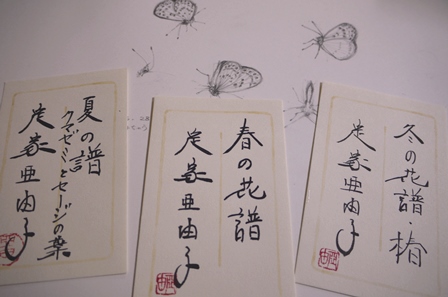 夏の譜
クマゼミとセージの葉
定家亜由子
春の花譜
定家亜由子
冬の花譜・椿
定家亜由子